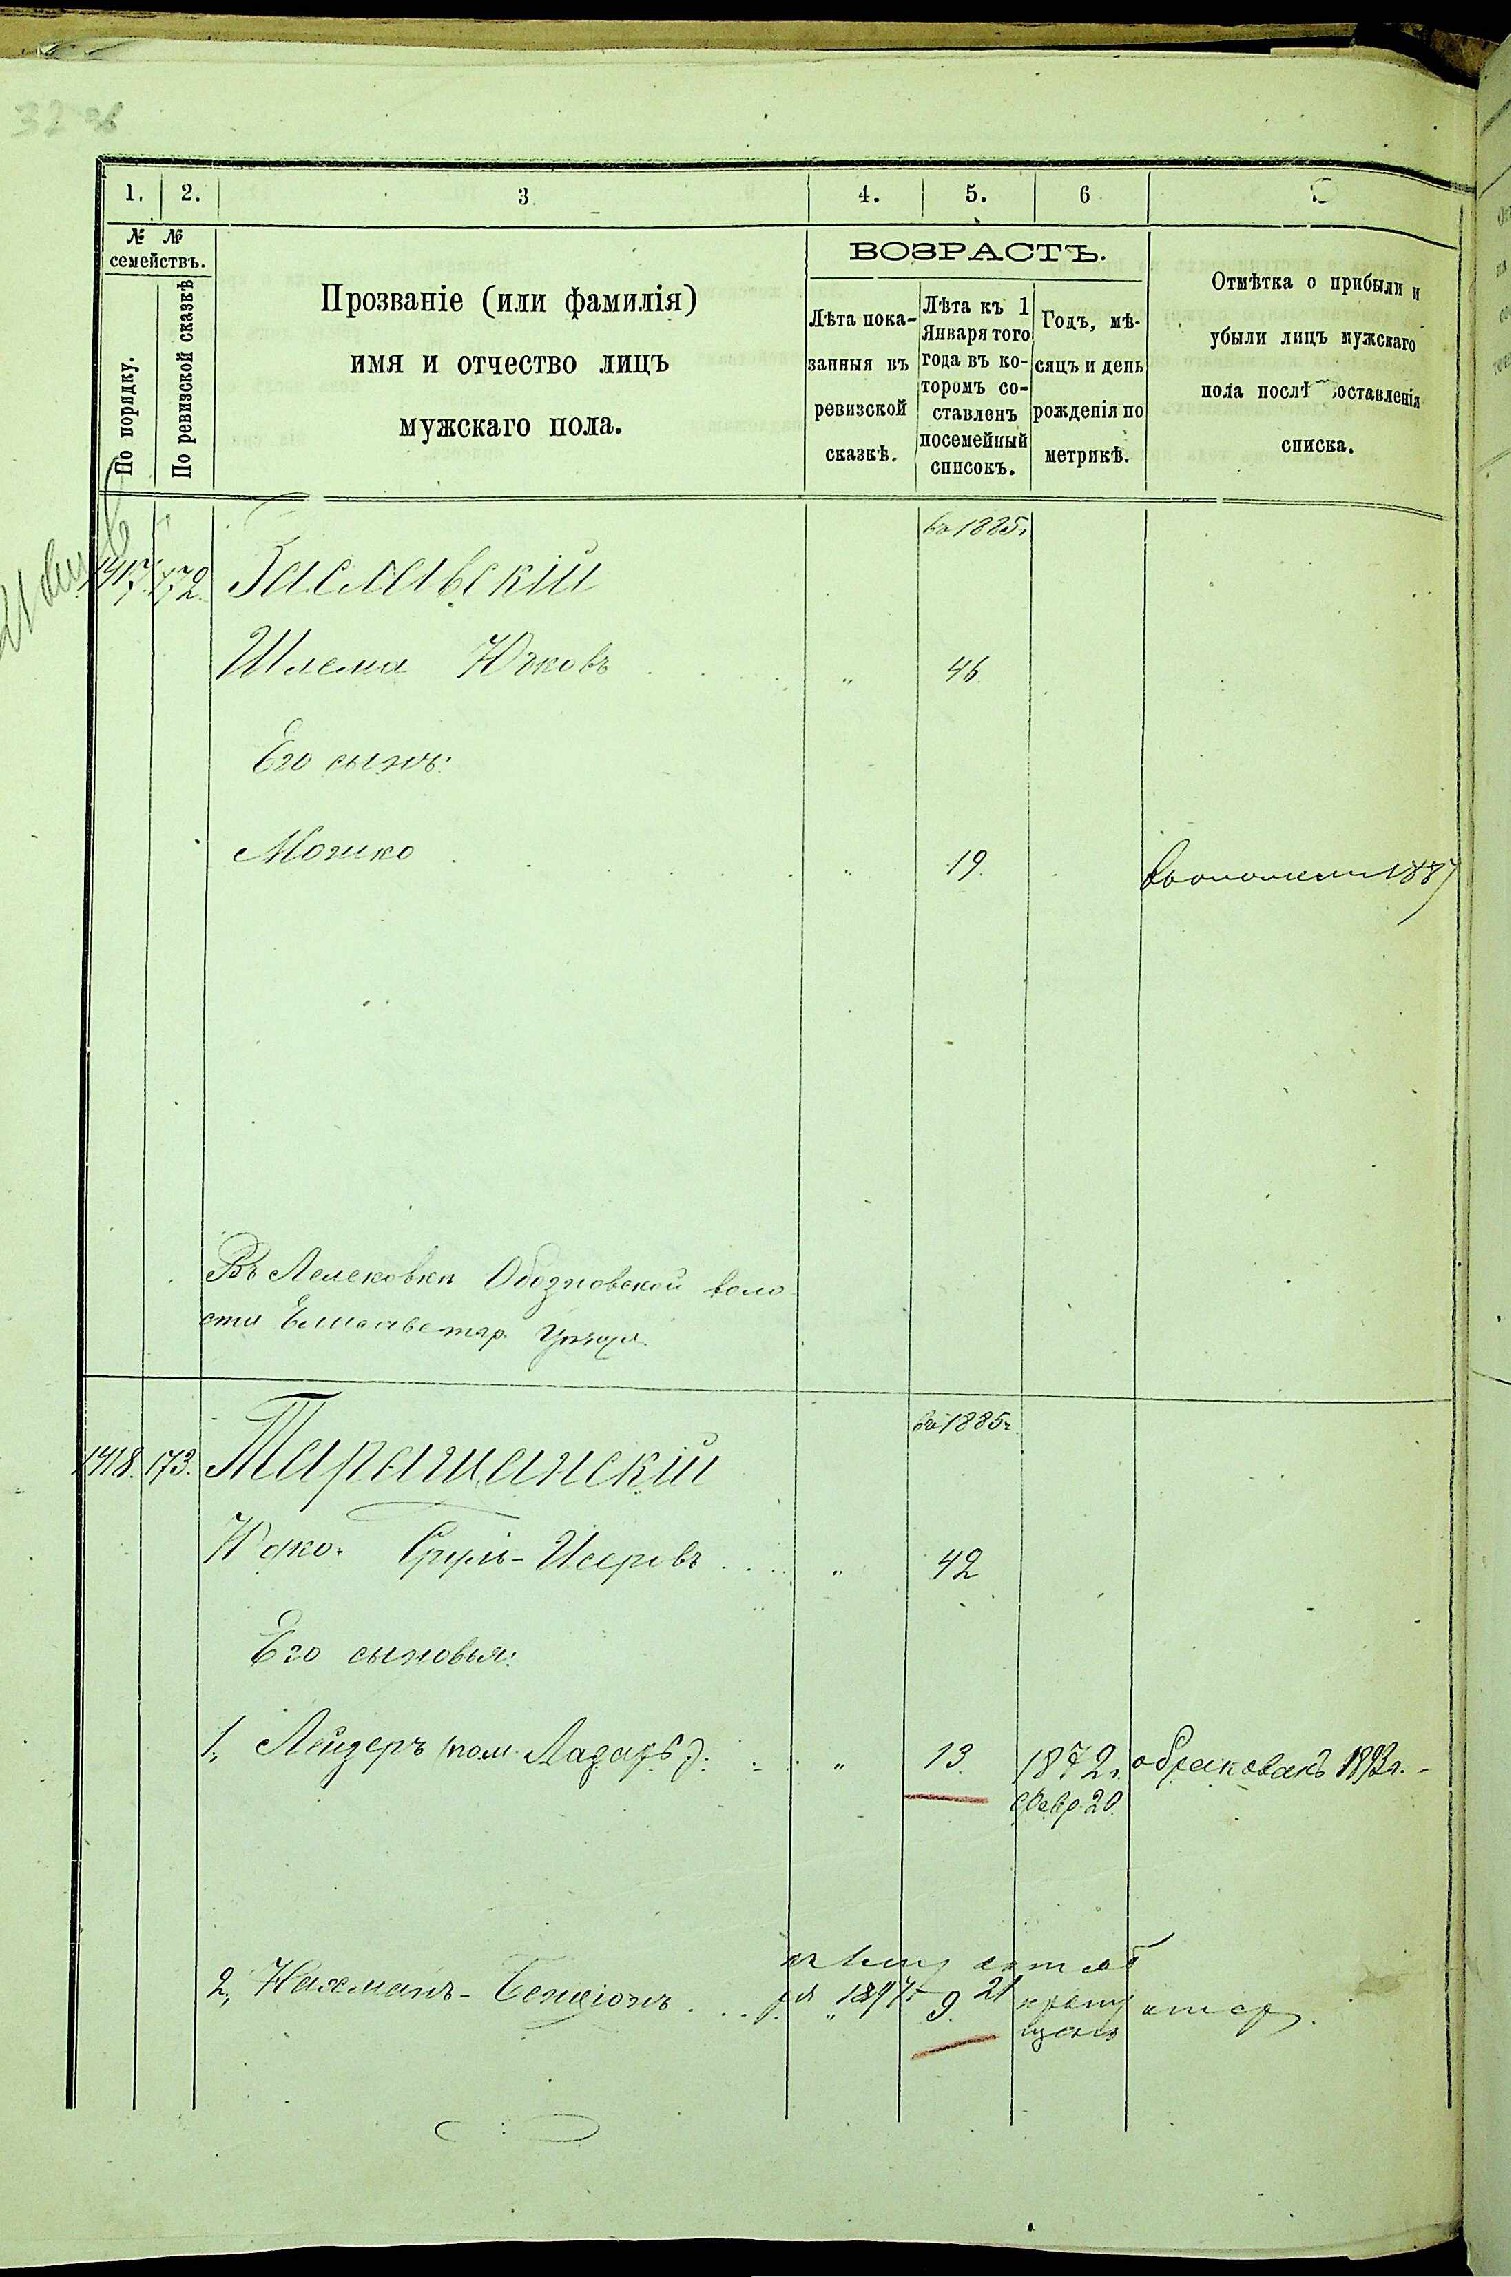 32 об
1. 2. 3 4. 5. 6
№ № семействъ.
По порядку.
По ревизской сказкѣ
Прозваніе (или фамилія)
имя и отчество лицъ
мужскаго пола.
ВОЗРАСТЪ.
Лѣта пока-
занныя въ
ревизской
сказкѣ.
Лѣта къ 1
Января того
года въ ко-
торомъ со-
ставленъ
посемейный
списокъ.
Годъ, мѣ-
сяцъ и день
рожденія по
метрикѣ.
Отмѣтка о прибыли и
убыли лицъ мужскаго
пола послѣ составленія
списка.
въ 1885г
1417. 172. Заславскій
Шлема Юдковъ 46
Его сынъ:
Мошко 19. 1887
Въ Лелековки Обозновской воло
сти Елисаветгр. Уѣзда
въ 1885г
1418. 173. Таращанскій
Юдко Сруль-Исеровъ 42
Его сыновья:
1, Лейзеръ (пол. Лазарь). 13. 1872г. обракованъ 1893г.
Февр. 20
2, Нахманъ-Бенціонъ 1897г 9. 21